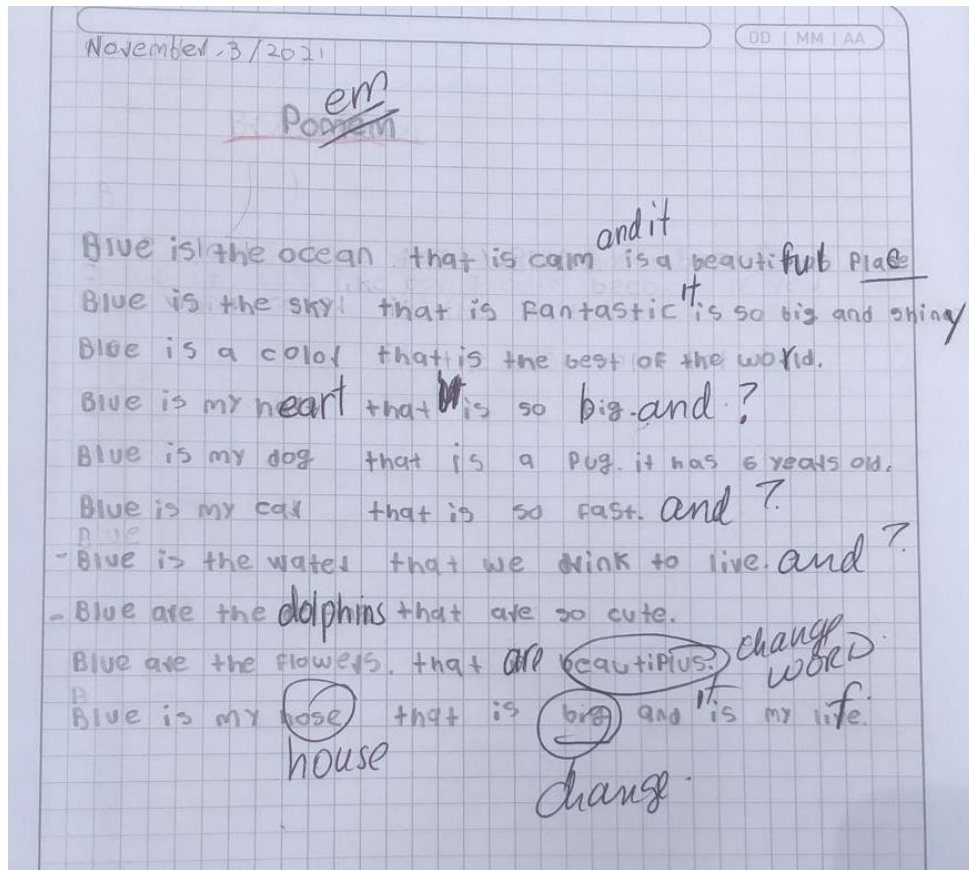 DD | MM | AA
November. 3/2021
em
Pomem
and it
Blue is the ocean that is calm is a beautiful place
Blue is the sky that is Fantastic it is so big and shiny
Bloe is a color that is the best of the world.
Blue is my heart that is so big. and ?
Blue is my dog that is a Pug. it has 6 years old.
Blue is my car that is so fast. and ?
- Blue is the water that we drink to live. and ?
- Blue are the dolphins that are so cute.
Blue are the flowers. that are beautiplus. change word
Blue is my hose that is big and it is my life.
house
change.